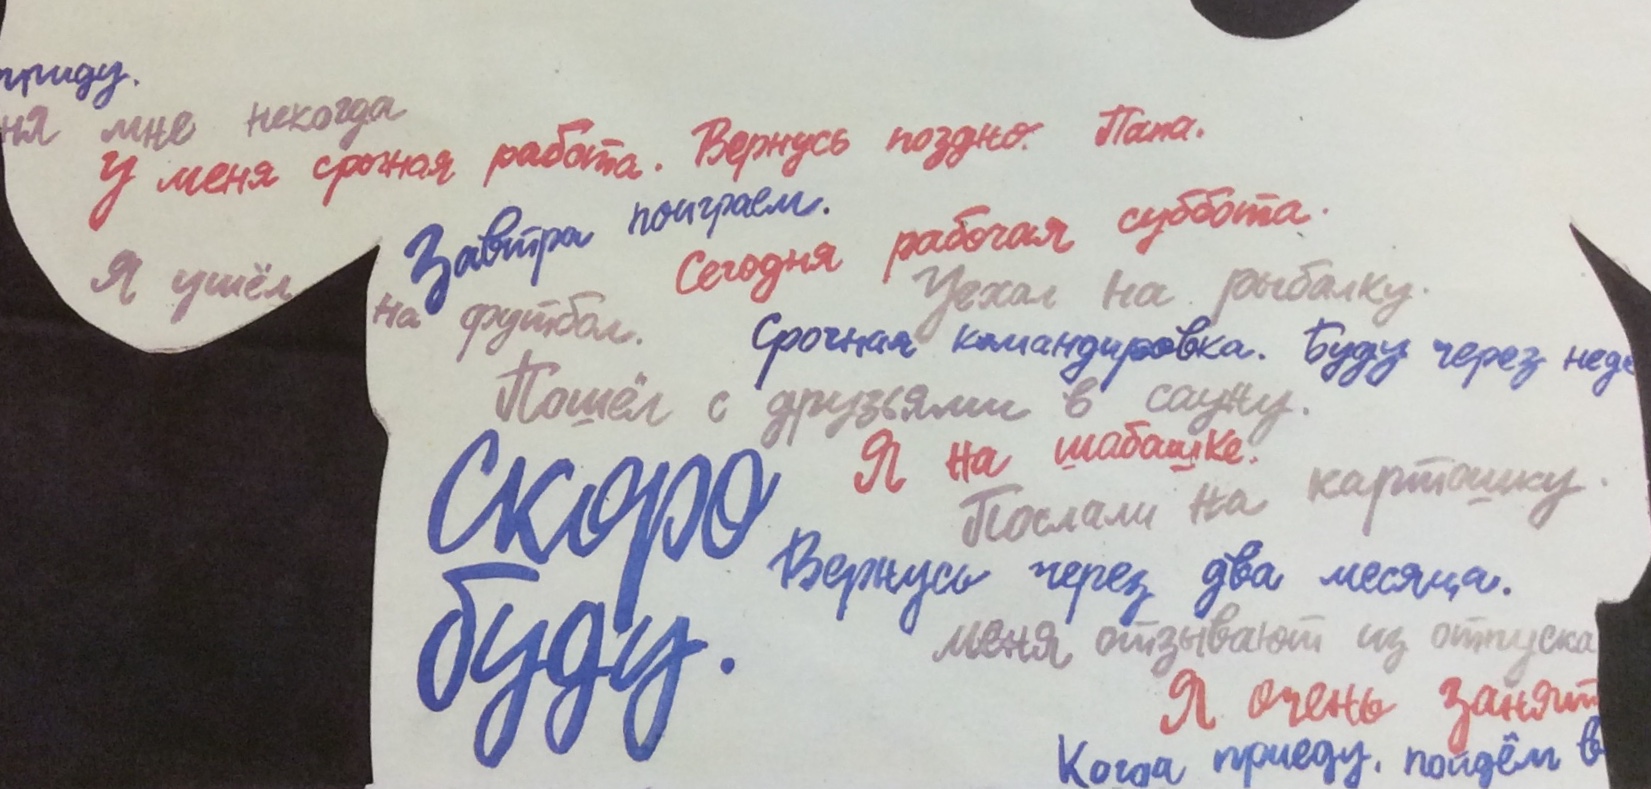 приду.
мне некогда
У меня срочная работа. Вернусь поздно. Папа.
Завтра поиграем.
Сегодня рабочая суббота.
Я ушёл на футбол.
Уехал на рыбалку.
Срочная командировка. Буду через
Пошёл с друзьями в сауну.
Я на шабашке.
Скоро
буду.
Послали на картошку.
Вернусь через два месяца.
меня отзывают из отпуска
Я очень занят
Когда приеду, пойдём в